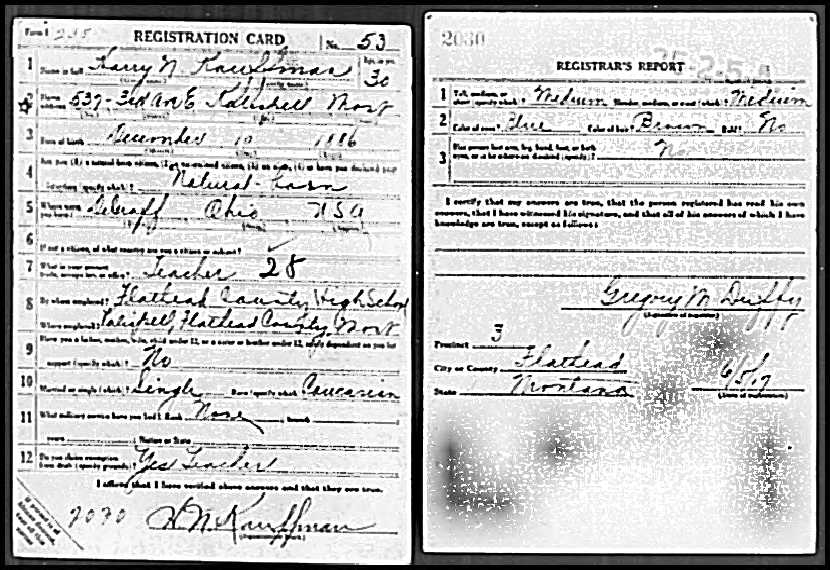 Form 1 235 REGISTRATION CARD No. 53
1 Name in full Harry N. Kauffman Age, in yrs. 30
2 Home address 537-3rd Ave E Kalispell Mont
3 Date of birth December 10 1886
4 Are you (1) a natural-born citizen, (2) a naturalized citizen, (3) an alien, (4) or have you declared your
intention (specify which)? Natural-born
5 Where were you born? DeGraff Ohio USA
6 If not a citizen, of what country are you a citizen or subject?
7 What is your present trade, occupation, or office? Teacher 28
8 By whom employed? Flathead County High School
Where employed? Kalispell, Flathead County, Mont
9 Have you a father, mother, wife, child under 12, or a sister or brother under 12, solely dependent on you for
support (specify which)? No
10 Married or single (which)? Single Race (specify which)? Caucasian
11 What military service have you had? Rank None branch
years Nation or State
12 Do you claim exemption from draft (specify grounds)? Yes Teacher
I affirm that I have verified above answers and that they are true.
H N Kauffman
2030
REGISTRAR'S REPORT
1 Tall, medium, or short (specify which)? Medium Slender, medium, or stout (which)? Medium
2 Color of eyes? Blue Color of hair? Brown Bald? No
3 Has person lost arm, leg, hand, foot, or both eyes, or is he otherwise disabled (specify)? No
I certify that my answers are true, that the person registered has read his own
answers, that I have witnessed his signature, and that all of his answers of which I have
knowledge are true, except as follows:
Gregory M Duffy
(Signature of registrar)
Precinct 3
City or County Flathead
State Montana 6/5/17
(Date of registration)